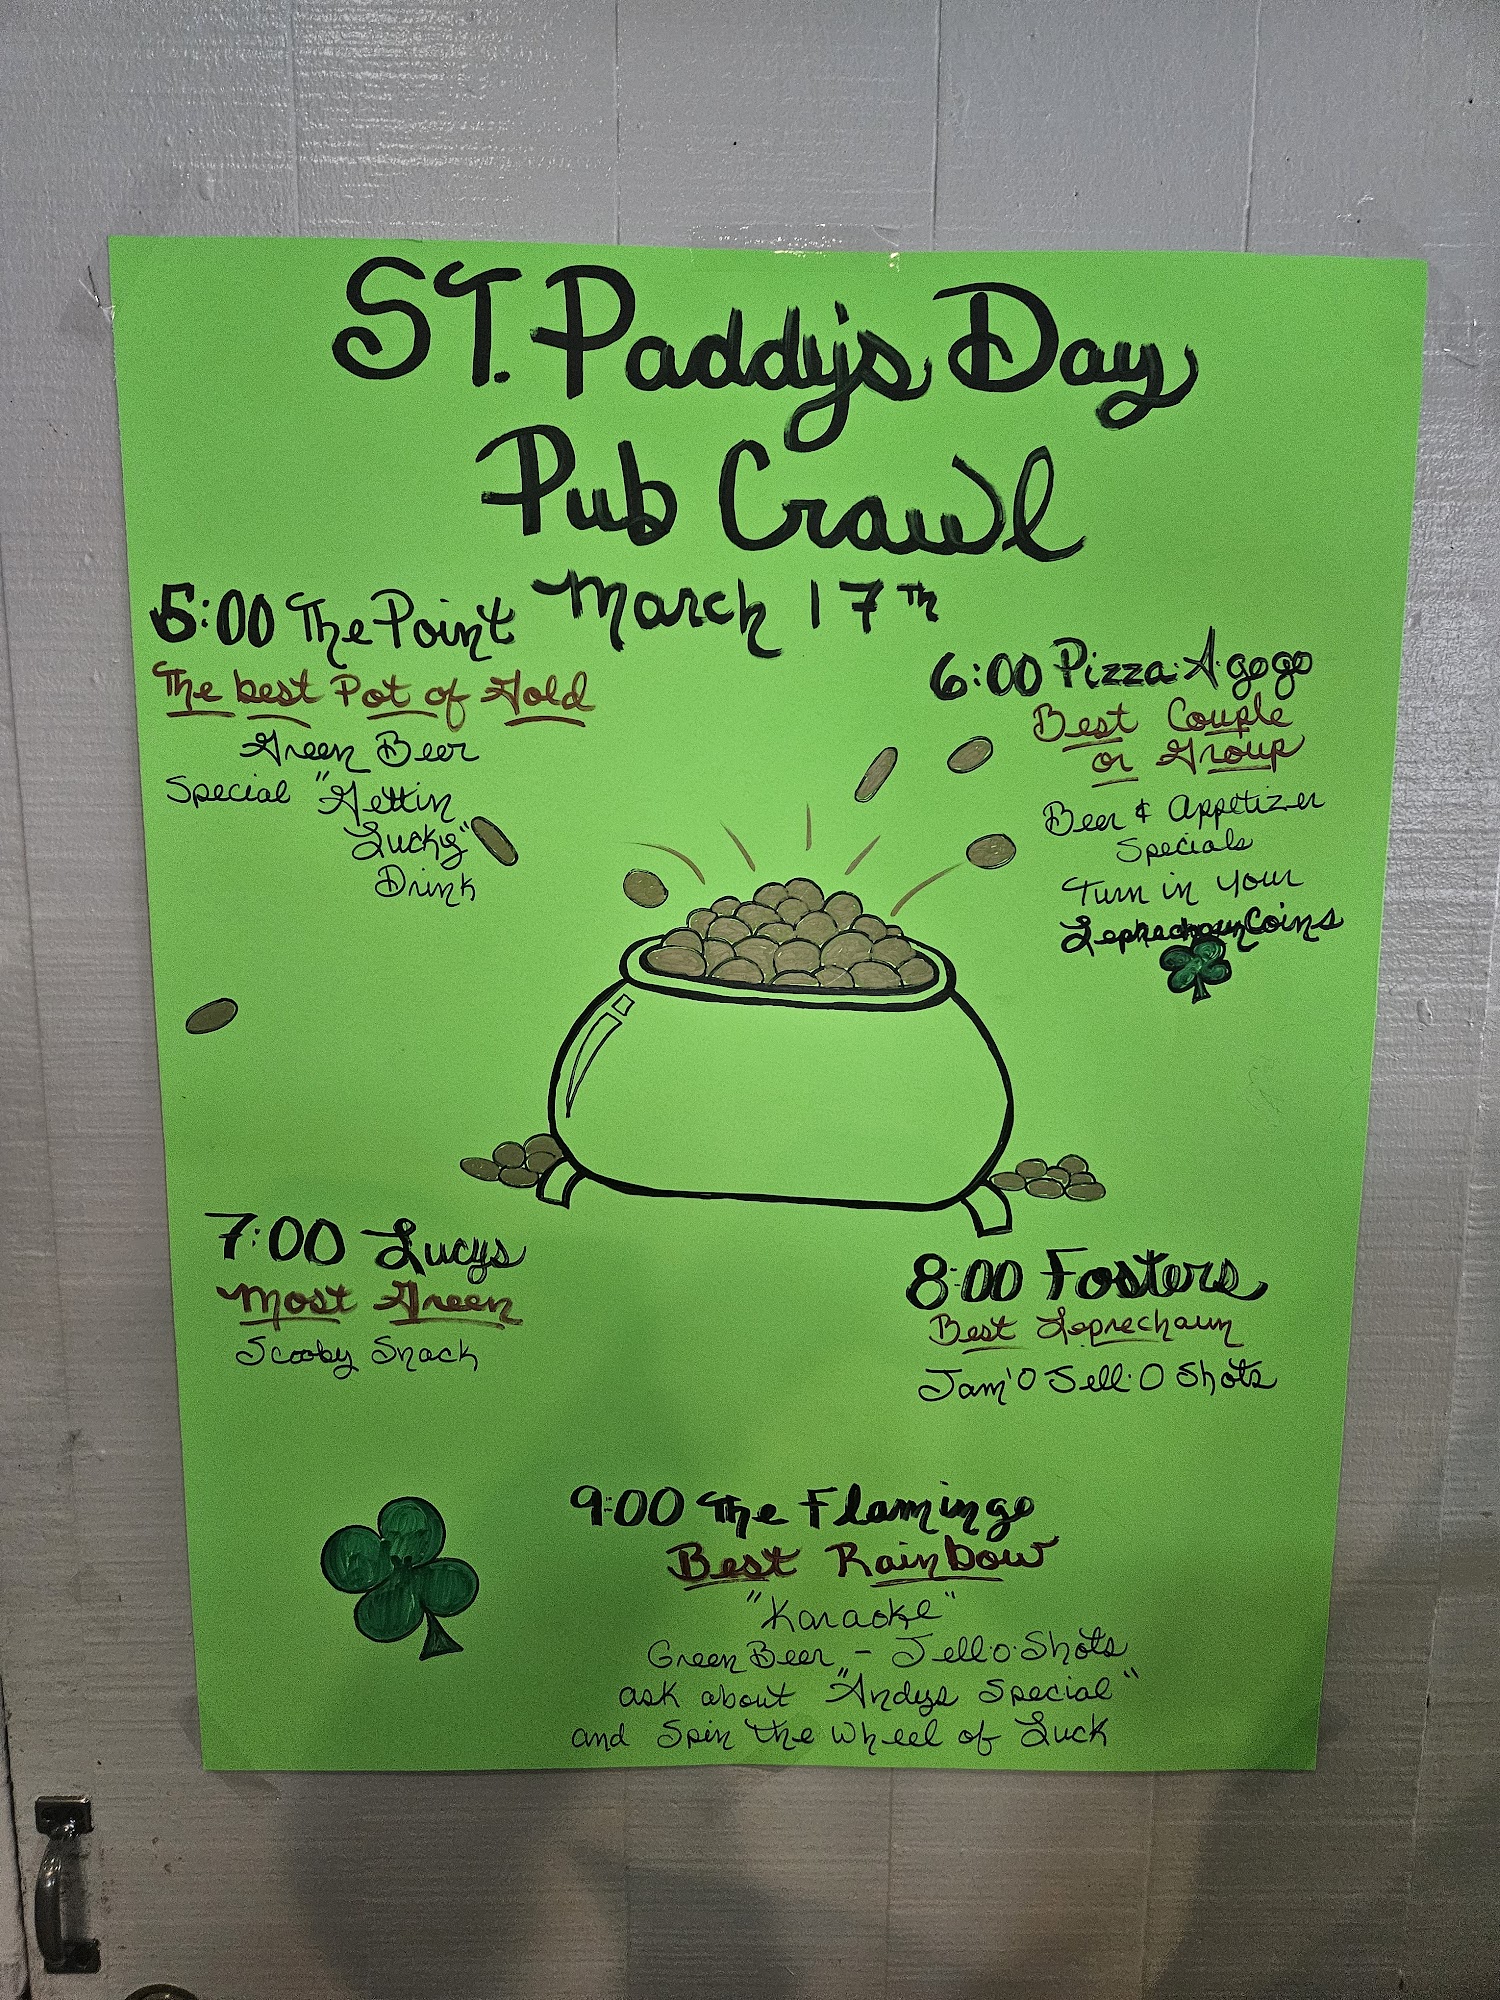 ST. Paddy's Day
Pub Crawl
March 17th
5:00 The Point
The best Pot of Gold
Green Beer
Special "Gettin
Lucky"
Drink
6:00 Pizza·A·gogo
Best Couple
or Group
Beer & Appetizer
Specials
Turn in your
Leprechaun Coins
7:00 Lucys
Most Green
Scooby Snack
8:00 Fosters
Best Leprechaun
Jam'O Jell·O Shots
9:00 The Flamingo
Best Rainbow
"Karaoke"
Green Beer - Jell·o·Shots
ask about "Andys Special"
and Spin the wheel of Luck